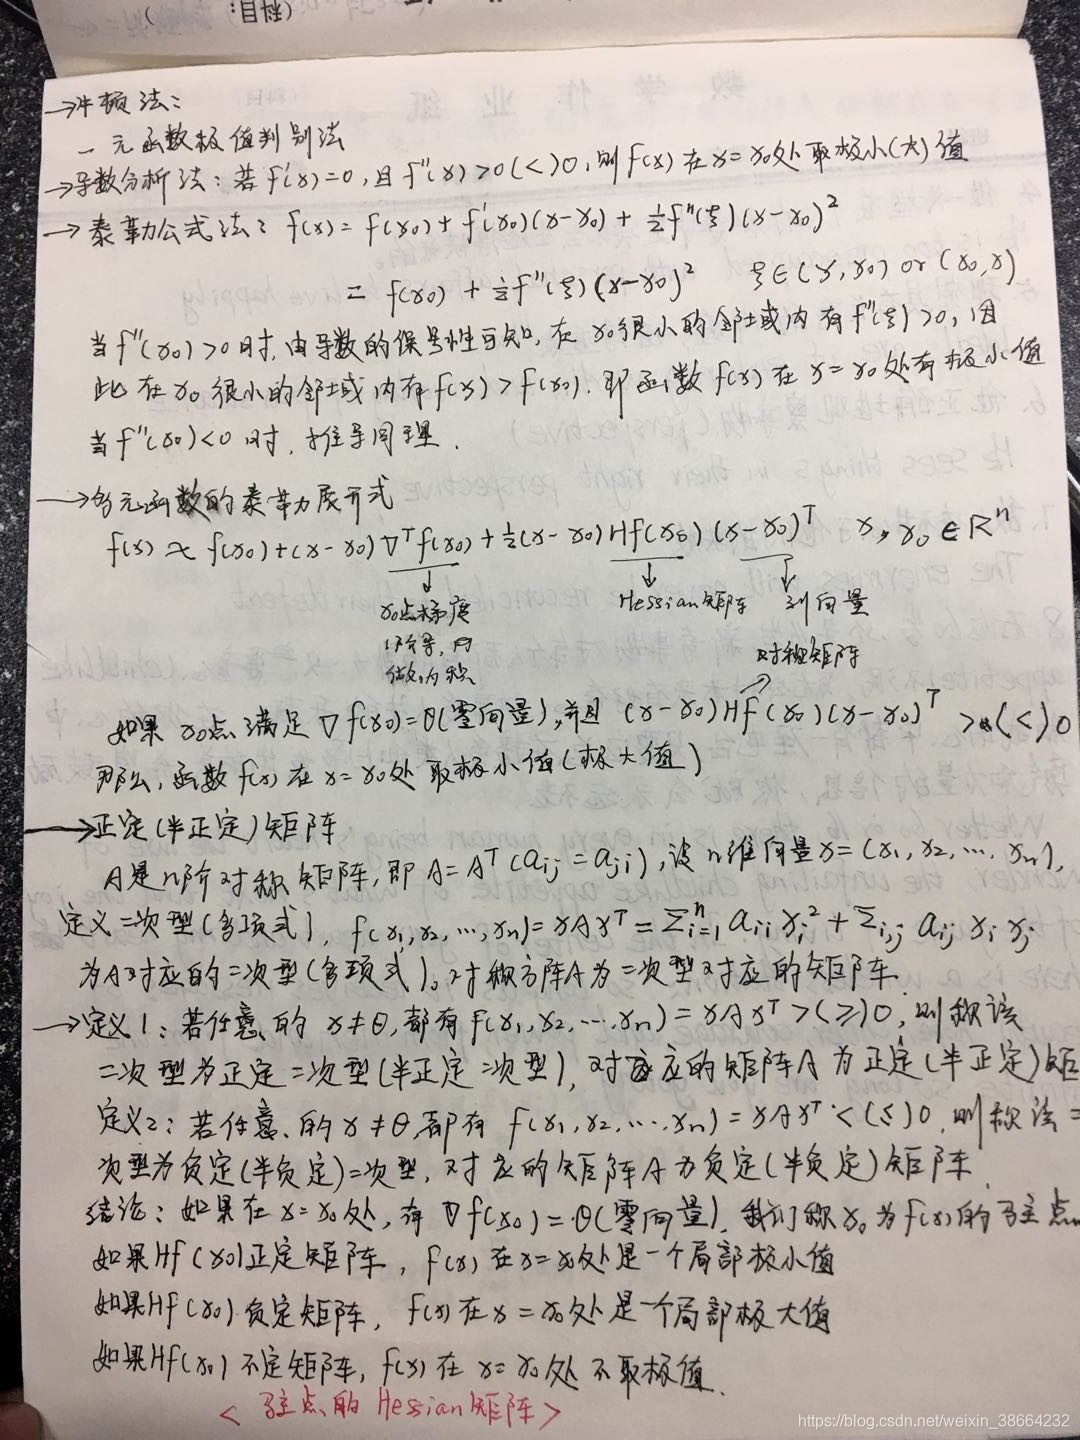 (科目:
→牛顿法:
一元函数极值判别法
→导数分析法: 若f'(x)=0, 且f''(x)>0(<)0, 则f(x)在x=x0处取极小(大)值
→泰勒公式法: f(x)= f(x0)+f'(x0)(x-x0)+½f''(ξ)(x-x0)²
= f(x0)+½f''(ξ)(x-x0)² ξ∈(x,x0) or (x0,x)
当f''(x0)>0时, 由导数的保号性可知, 在x0很小的邻域内有f''(ξ)>0, 因
此在x0很小的邻域内有f(x)>f(x0). 即函数f(x)在x=x0处有极小值
当f''(x0)<0时, 推导同理.
→多元函数的泰勒展开式
f(x)≈f(x0)+(x-x0)∇ᵀf(x0)+½(x-x0)Hf(x0)(x-x0)ᵀ x,x0∈Rⁿ
x0点梯度 Hessian矩阵 列向量
做内积
对称矩阵
如果x0点满足∇f(x0)=θ(零向量),并且(x-x0)Hf(x0)(x-x0)ᵀ>(<)0
那么,函数f(x)在x=x0处取极小值(极大值)
→正定(半正定)矩阵
A是n阶对称矩阵, 即A=Aᵀ(aij=aji), 设n维向量x=(x1,x2,…,xn),
定义二次型(多项式), f(x1,x2,…,xn)=xAxᵀ=Σⁿi=1 aii xi²+Σi,j aij xi xj
为A对应的二次型(多项式)。对称方阵A为二次型对应的矩阵.
→定义1: 若任意的x≠θ,都有f(x1,x2,…,xn)=xAxᵀ>(≥)0, 则称该
二次型为正定二次型(半正定二次型), 对应的矩阵A为正定(半正定)矩
定义2: 若任意的x≠θ,都有f(x1,x2,…,xn)=xAxᵀ<(≤)0, 则称该二
次型为负定(半负定)二次型, 对应的矩阵A为负定(半负定)矩阵.
结论: 如果在x=x0处, 有∇f(x0)=θ(零向量), 我们称x0为f(x)的驻点.
如果Hf(x0)正定矩阵, f(x)在x=x0处是一个局部极小值
如果Hf(x0)负定矩阵, f(x)在x=x0处是一个局部极大值
如果Hf(x0)不定矩阵, f(x)在x=x0处不取极值.
<驻点的Hessian矩阵>
https://blog.csdn.net/weixin_38664232